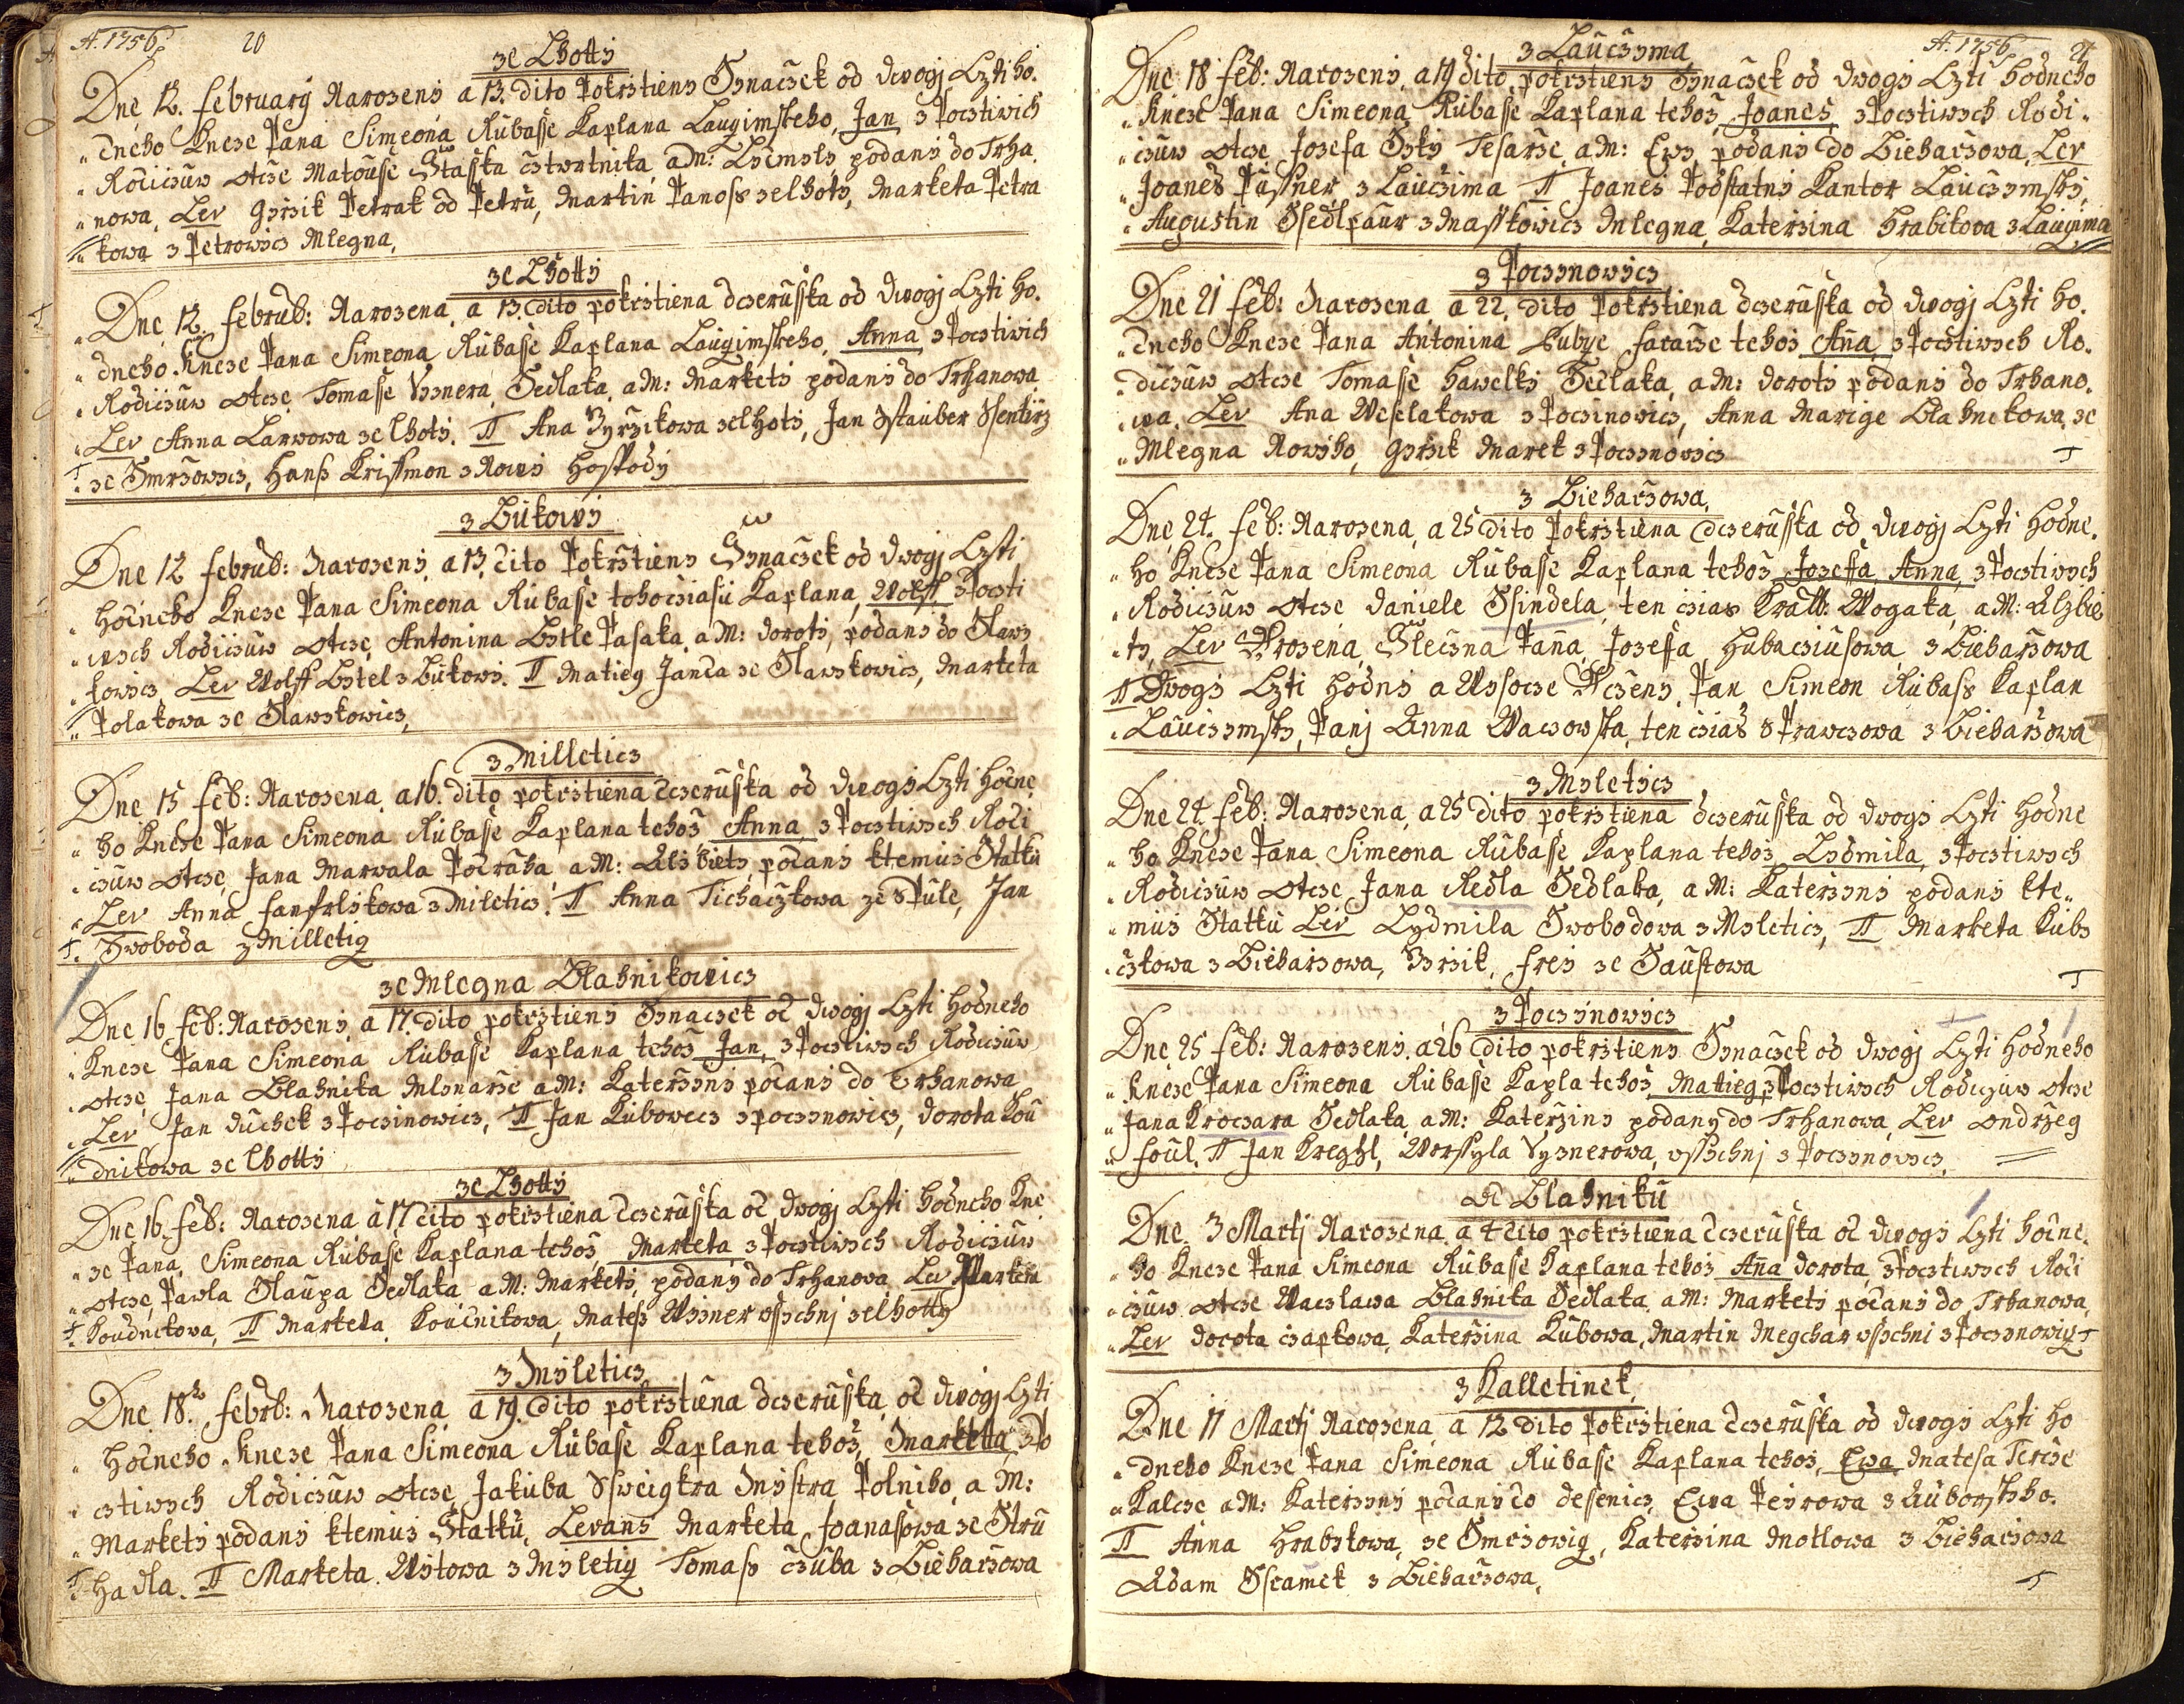 A. 1756. 20
ze Lhotti
Dne 12. Februarij Narozeni a 13. dito Pokrztieny Synaczek od dwogj Czti ho.
dneho Kneze Pana Simeona Rubasse Kaplana Laucimskeho, Jan z Pocztiwich
Rodiczuw otcze Matouse Stasska cztwrtnika a M: podani do Trha.
nowa, Lev Girzik Petrak od Petru, Martin Panoss ze lhoty, Marketa Petra
kowa z Petrowicz Mlegna,
ze Lhotti
Dne 12. Februb: Narozena a 13. dito pokrztiena dczeruska od dwogj Czti ho.
dneho Kneze Pana Simeona Rubasse Kaplana Laucimskeho, Anna z Pocztiwich
Rodiczuw otcze Tomasse Vysnera Sedlaka, a M: Markety podany do Trhanowa
Lev Anna Larwowa ze lhoty. TT Ana Gyrzikowa ze lhoty, Jan Sstauber Ssentirz
ze Smrzowicz, Hanss Krissmon z Nowi Hospody
z Bukowy
Dne 12 Februb: Narozeny a 13. dito Pokrztieny Synaczek od dwogj Czti
hodneho Kneze Pana Simeona Rubasse tohocziasu Kaplana, Wolff z Poczti
wych Rodiczuw otcze Antonina Bstle Pasaka a M: Doroty, podany do Slaws
kowicz Lev Wolff Bstel z Bukowi. TT Matieg Janda ze Slawskowicz, Marketa
Polakowa ze Slawskowicz,
z Milleticz
Dne 15 Feb: Narozena a 16. dito pokrztiena dczeruska od dwogj Czti hodne
ho Kneze Pana Simeona Rubasse Kaplana tehoz Anna z Pocztiwych Rodi
czuw otcze Jana Marwala Podraha a M: Alzbiety podany ktemuz Statku
Lev Anna z Mileticz. TT Anna Tichaczkowa ze Pule, Jan
Swoboda z Milletig
ze Mlegna Blahnikowicz
Dne 16 Feb: Narozeny a 17. dito pokrztieny Synaczek od dwogj Czti hodneho
Kneze Pana Simeona Rubasse Kaplana tehoz Jan, z Pocztiwych Rodiczuw
otcze Jana Blahnika Mlynarze a M: Katerzyny podany do Trhanowa
Lev Jan Duchek z Poczinowicz, TT Jan Kubowecz z poczynowicz, Dorota Kou
dnikowa ze lhotti
ze Lhotti
Dne 16. Feb: Narozena a 17 dito pokrztiena dczeruska od dwogj Czti hodneho Kne
ze Pana Simeona Rubasse Kaplana tehoz, Marketa z Pocztiwych Rodiczuw
otcze Pawla Slaupa Sedlaka a M: Markety, podany do Trhanowa Lev Marketa
Koudnikowa, TT Marketa Koudnikowa, Matess Wysner wssychnj ze lhotty
z Myleticz
Dne 18. Februb: Narozena a 19. dito pokrztiena dczeruska od dwogj Czti
hodneho Kneze Pana Simeona Rubasse Kaplana tehoz, Marketta z Po
cztiwych Rodiczuw otcze Jakuba Mystra Polniho a M:
Markety podany ktemuz Statku, Levans Marketa Joanasowa ze Stru
hadla. TT Marketa Witowa z Myletig Tomass Czuba z Bieharzowa
A. 1756. 21
z Lauczyma
Dne 18 Feb: Narozeny a 19 dito pokrztieny Synaczek od dwogj Czti hodneho
Kneze Pana Simeona Rubasse Kaplana tehoz, Joanes, z Pocztiwych Rodi
czuw otcze Josefa Tesarze, a M: Ewy podany do Bieharzowa, Lev
Joanes Pussner z Lauczima TT Joanes Podstatny Kantor Lauczymsky,
Augustin z Masstowicz Mlegna, Katerzina Hrabikova z Laucima
z Poczynowicz
Dne 21 Feb: Narozena a 22. dito Pokrztiena dczeruska od dwogj Czti ho.
dneho Kneze Pana Antonina Farárze tehoz Anna, z Pocztiwych Ro.
diczuw otcze Tomasse Hawelky Sedlaka, a M: Doroty podany do Trhano.
wa. Lev Ana Weselakowa z Poczinowicz, Anna Marige Blahnekowa, ze
Mlegna Nowiho, Girzik Marek z Poczynowicz
z Bieharzowa
Dne 24. Feb: Narozena, a 25 dito Pokrztiena dczeruska od dwogj Czti hodne.
ho Kneze Pana Simeona Rubasse Kaplana tehoz Josefa Anna, z Pocztiwych
Rodiczuw otcze Daniele Ssindela, ten czias Wogaka, a M: Alzbie
ty Lev Urozena Sleczna Panna Josefa z Bieharzowa
TT Dwogj Czti hodny a Wysocze Uczeny Pan Simeon Rubass Kaplan
Lauczymsky, Panj Anna Waczowska, ten czias Sprawczowa z Bieharzowa
z Myletycz
Dne 24. Feb: Narozena, a 25 dito pokrztiena dczeruska od dwogj Czti hodne
ho Kneze Pana Simeona Rubasse Kaplana tehoz, Lydmila, z Pocztiwych
Rodiczuw otcze Jana Redla Sedlaka, a M: Katerzyny podany kte
muz Statku Lev Lydmila Swobodowa z Myleticz, TT Marketa Kuby
czkowa z Bieharzowa, Girzik Frej ze Saustowa
z Poczynowicz
Dne 25 Feb: Narozeny a 26 dito pokrztieny Synaczek od dwogj Czti hodneho
Kneze Pana Simeona Rubasse Kapla tehoz, Matieg z Pocztiwych Rodiczuw otcze
Jana Kroczara Sedlaka, a M: Katerziny podany do Trhanowa, Lev Ondrzeg
Foul, TT Jan Kregzl, Worssyla Vysnerowa, wssychnj z Poczynowicz
od Blahniku
Dne 3 Martj Narozena a 4 dito pokrztiena dczeruska od dwogj Czti hodne.
ho Kneze Pana Simeona Rubasse Kaplana tehoz Anna Dorota, z Pocztiwych Rodi
czuw otcze Waczlawa Blahnika Sedlaka, a M: Markety podany do Trhanowa,
Lev Dorota Czapkowa, Katerzina Kubowa, Martin Megchar wssychni z Poczynowig
z Kalletinek
Dne 11 Martj Narozena a 12 dito Pokrztiena dczeruska od dwogj Czti ho
dneho Kneze Pana Simeona Rubasse Kaplana tehoz, Ewa Matesa
Kalcze a M: Katerzyny podany do Desenicz, Ewa
TT Anna Hrabykowa, ze Smrzowig, Katerzina Motlowa z Bieharzowa
Adam Sramek z Bieharzowa,